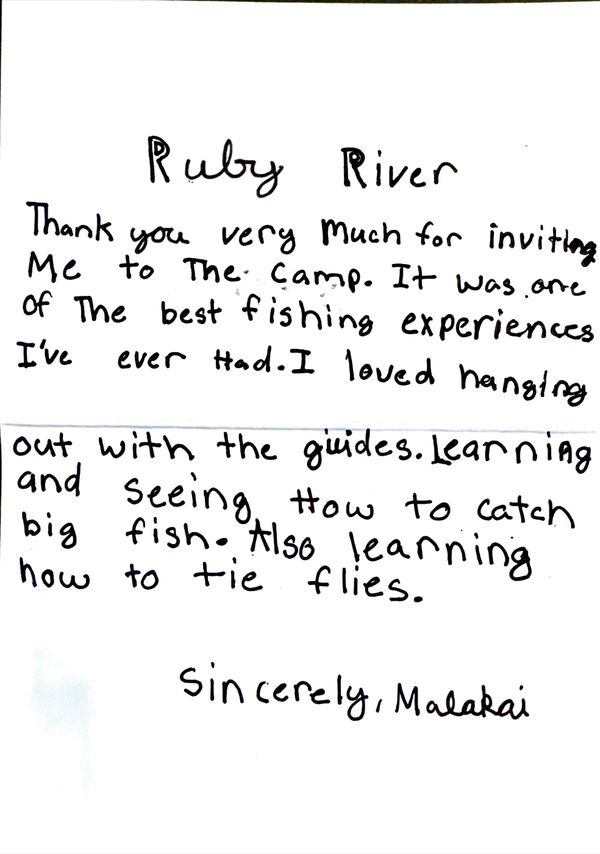 Ruby River
Thank you very Much for inviting
Me to The Camp. It was one
of The best fishing experiences
I've ever Had. I loved hanging
out with the guides. Learning
and seeing How to catch
big fish. Also learning
how to tie flies.
Sincerely, Malakai